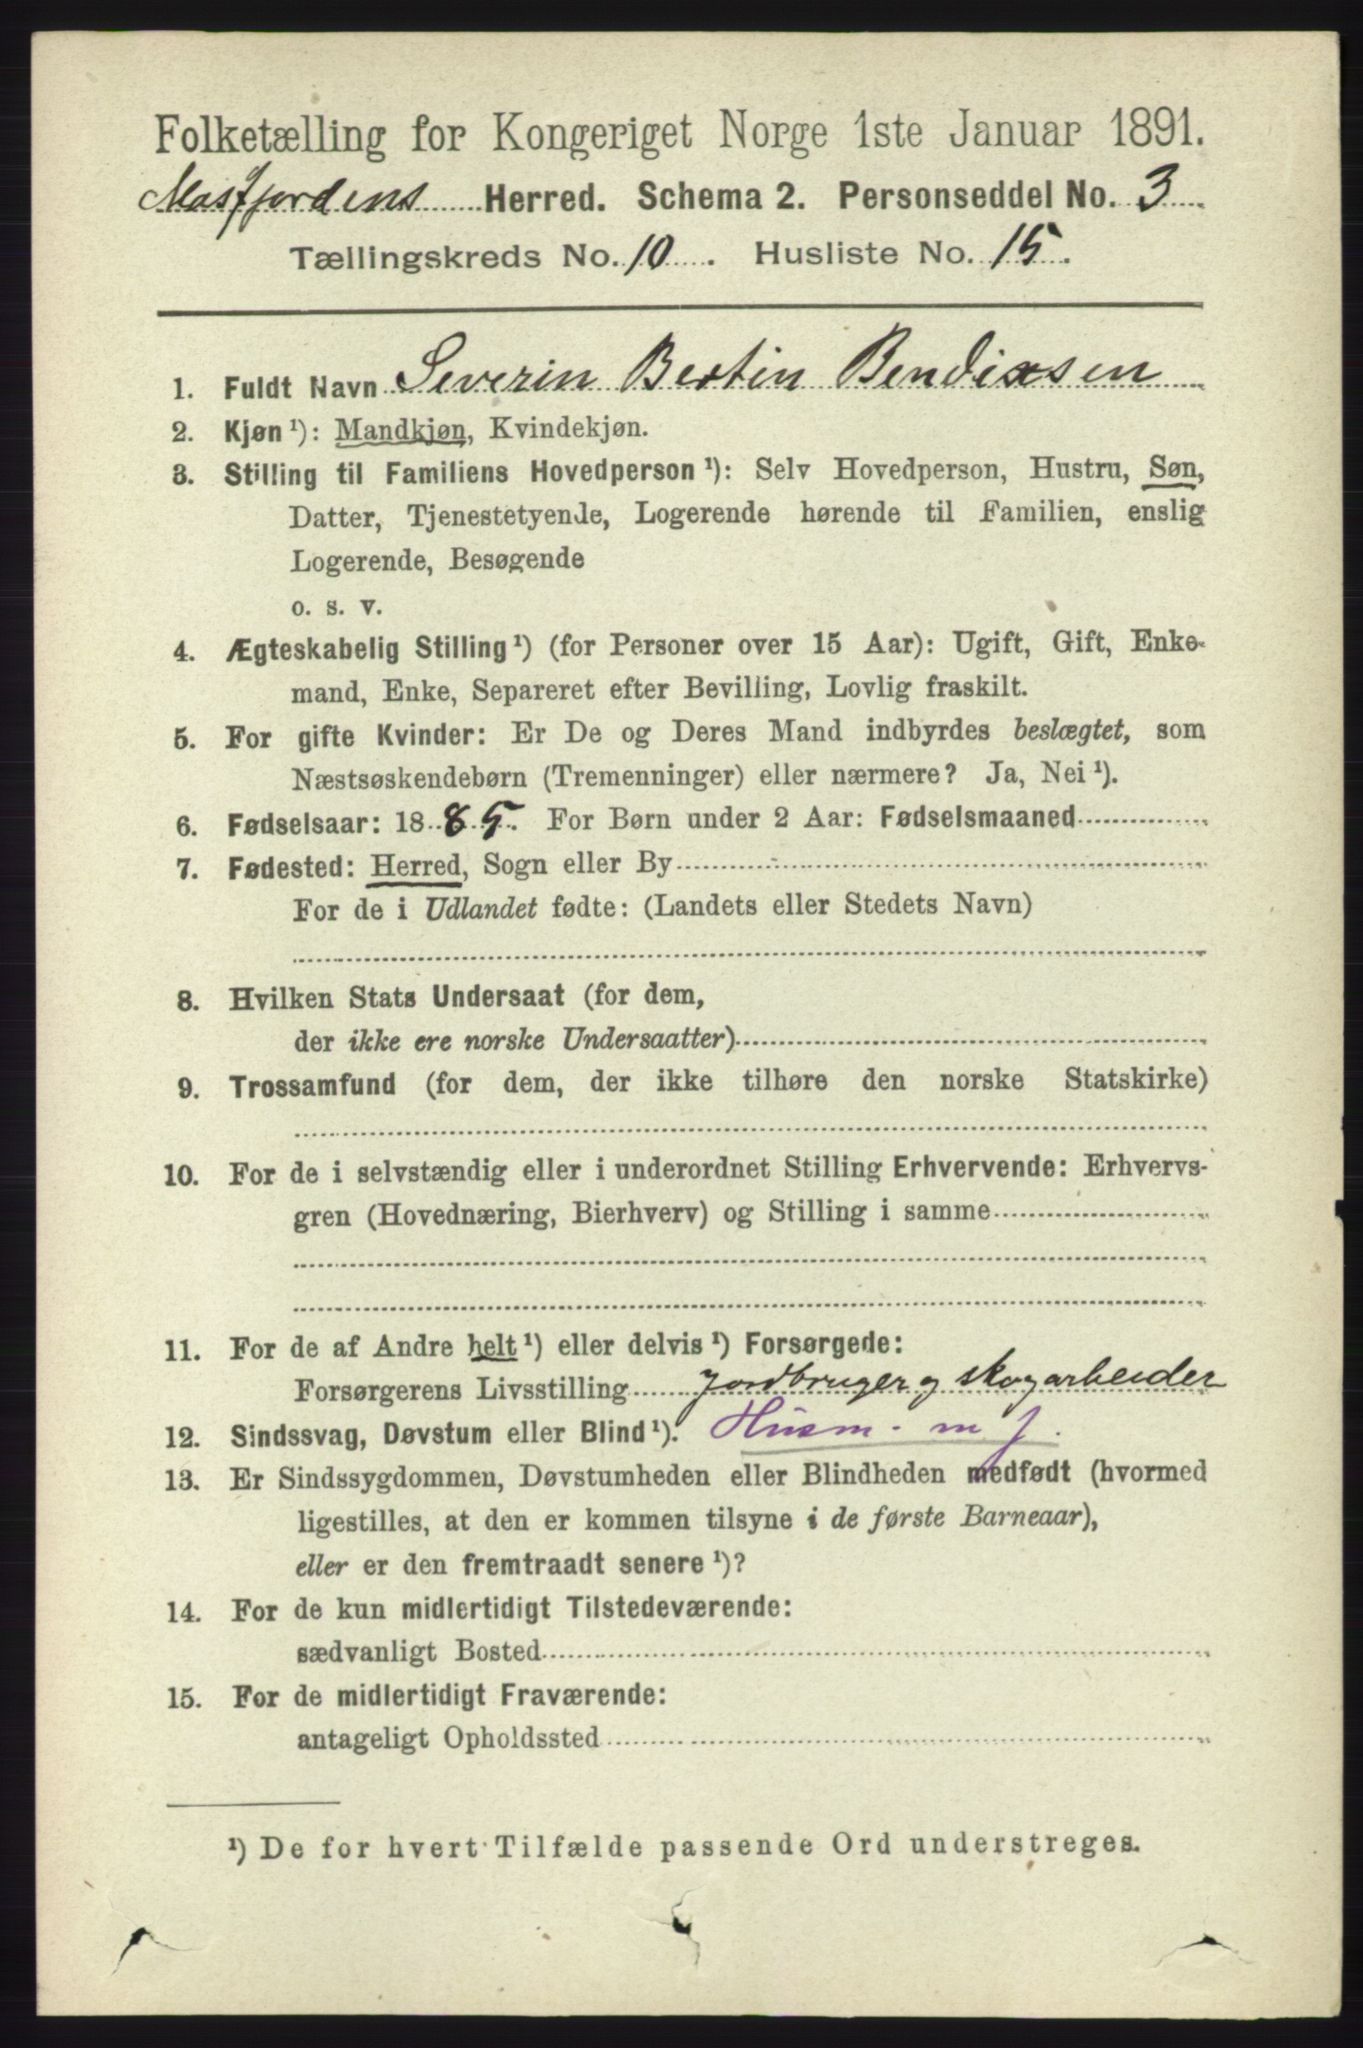 Folketælling for Kongeriget Norge 1ste Januar 1891.
Masfjordens Herred. Schema 2. Personseddel No. 3
Tællingskreds No. 10. Husliste No. 15.
1. Fuldt Navn Severin Bertin Bendixsen
2. Kjøn ¹): Mandkjøn, Kvindekjøn.
3. Stilling til Familiens Hovedperson ¹): Selv Hovedperson, Hustru, Søn,
Datter, Tjenestetyende, Logerende hørende til Familien, enslig
Logerende, Besøgende
o. s. v.
4. Ægteskabelig Stilling ¹) (for Personer over 15 Aar): Ugift, Gift, Enke-
mand, Enke, Separeret efter Bevilling, Lovlig fraskilt.
5. For gifte Kvinder: Er De og Deres Mand indbyrdes beslægtet, som
Næstsøskendebørn (Tremenninger) eller nærmere? Ja, Nei ¹).
6. Fødselsaar: 1885. For Børn under 2 Aar: Fødselsmaaned
7. Fødested: Herred, Sogn eller By
For de i Udlandet fødte: (Landets eller Stedets Navn)
8. Hvilken Stats Undersaat (for dem,
der ikke ere norske Undersaatter)
9. Trossamfund (for dem, der ikke tilhøre den norske Statskirke)
10. For de i selvstændig eller i underordnet Stilling Erhvervende: Erhvervs-
gren (Hovednæring, Bierhverv) og Stilling i samme
11. For de af Andre helt ¹) eller delvis ¹) Forsørgede:
Forsørgerens Livsstilling Jordbruger og skogarbeider
12. Sindssvag, Døvstum eller Blind ¹). Husm. m j.
13. Er Sindssygdommen, Døvstumheden eller Blindheden medfødt (hvormed
ligestilles, at den er kommen tilsyne i de første Barneaar),
eller er den fremtraadt senere ¹)?
14. For de kun midlertidigt Tilstedeværende:
sædvanligt Bosted
15. For de midlertidigt Fraværende:
antageligt Opholdssted
¹) De for hvert Tilfælde passende Ord understreges.